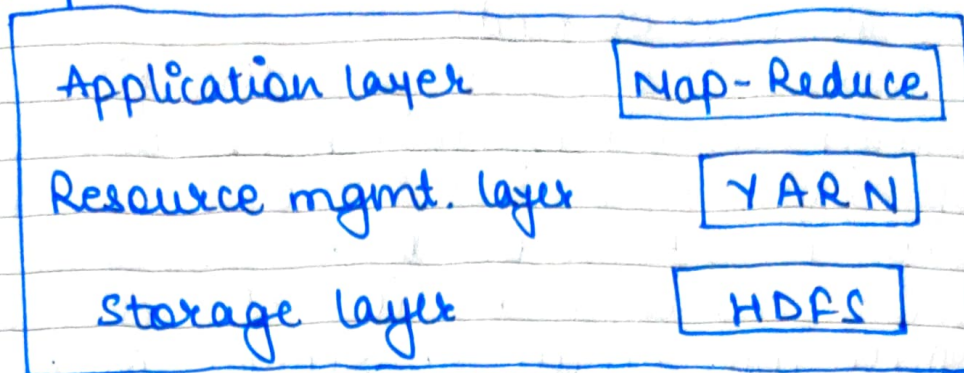 Application layer Map-Reduce
Resource mgmt. layer YARN
Storage layer HDFS